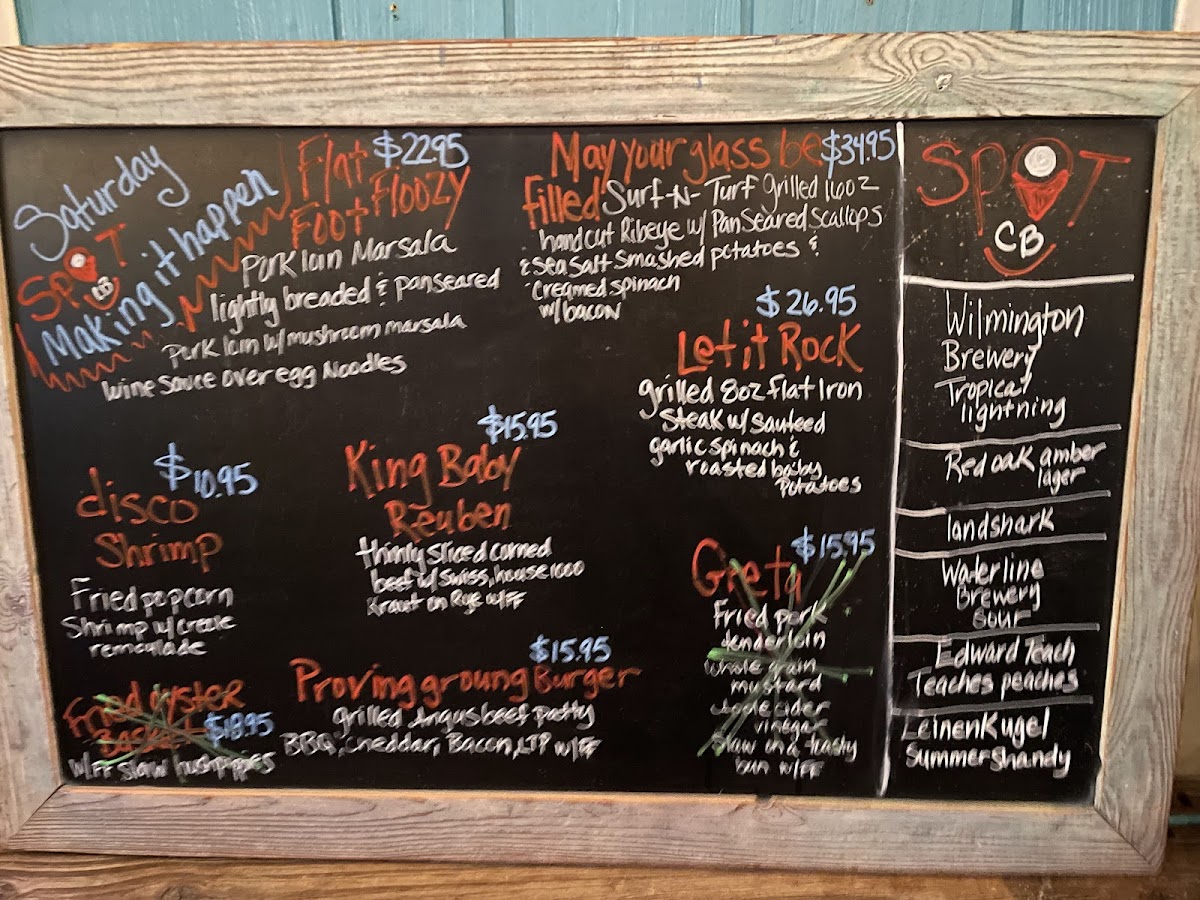 Saturday
SPOT
CB
Making it happen
Flat $22.95
Foot Floozy
Pork loin Marsala
lightly breaded & panseared
Pork loin w/ mushroom marsala
wine sauce over egg Noodles
May your glass be $34.95
filled Surf-N-Turf grilled 16oz
handcut Ribeye w/ Pan Seared Scallops
& sea salt smashed potatoes &
creamed spinach
w/ bacon
$26.95
Let it Rock
grilled 8oz flat Iron
Steak w/ sauteed
garlic spinach &
roasted baby
potatoes
$10.95
disco
Shrimp
Fried popcorn
Shrimp w/ creole
remoulade
$15.95
King Baby
Reuben
thinly sliced corned
beef w/ Swiss, house 1000
Kraut on Rye w/FF
$15.95
Greta
Fried pork
tenderloin
whole grain
mustard
cider
vinegar
Slaw on a toasty
bun w/FF
Fried oyster
Basket $18.95
w/FF slaw hushpuppies
$15.95
Proving groung Burger
grilled Angus beef patty
BBQ, Cheddar, Bacon, LTP w/FF
SPOT
CB
Wilmington
Brewery
Tropical
lightning
Red oak amber
lager
landshark
Waterline
Brewery
Sour
Edward Teach
Teaches peaches
Leinenkugel
Summer Shandy